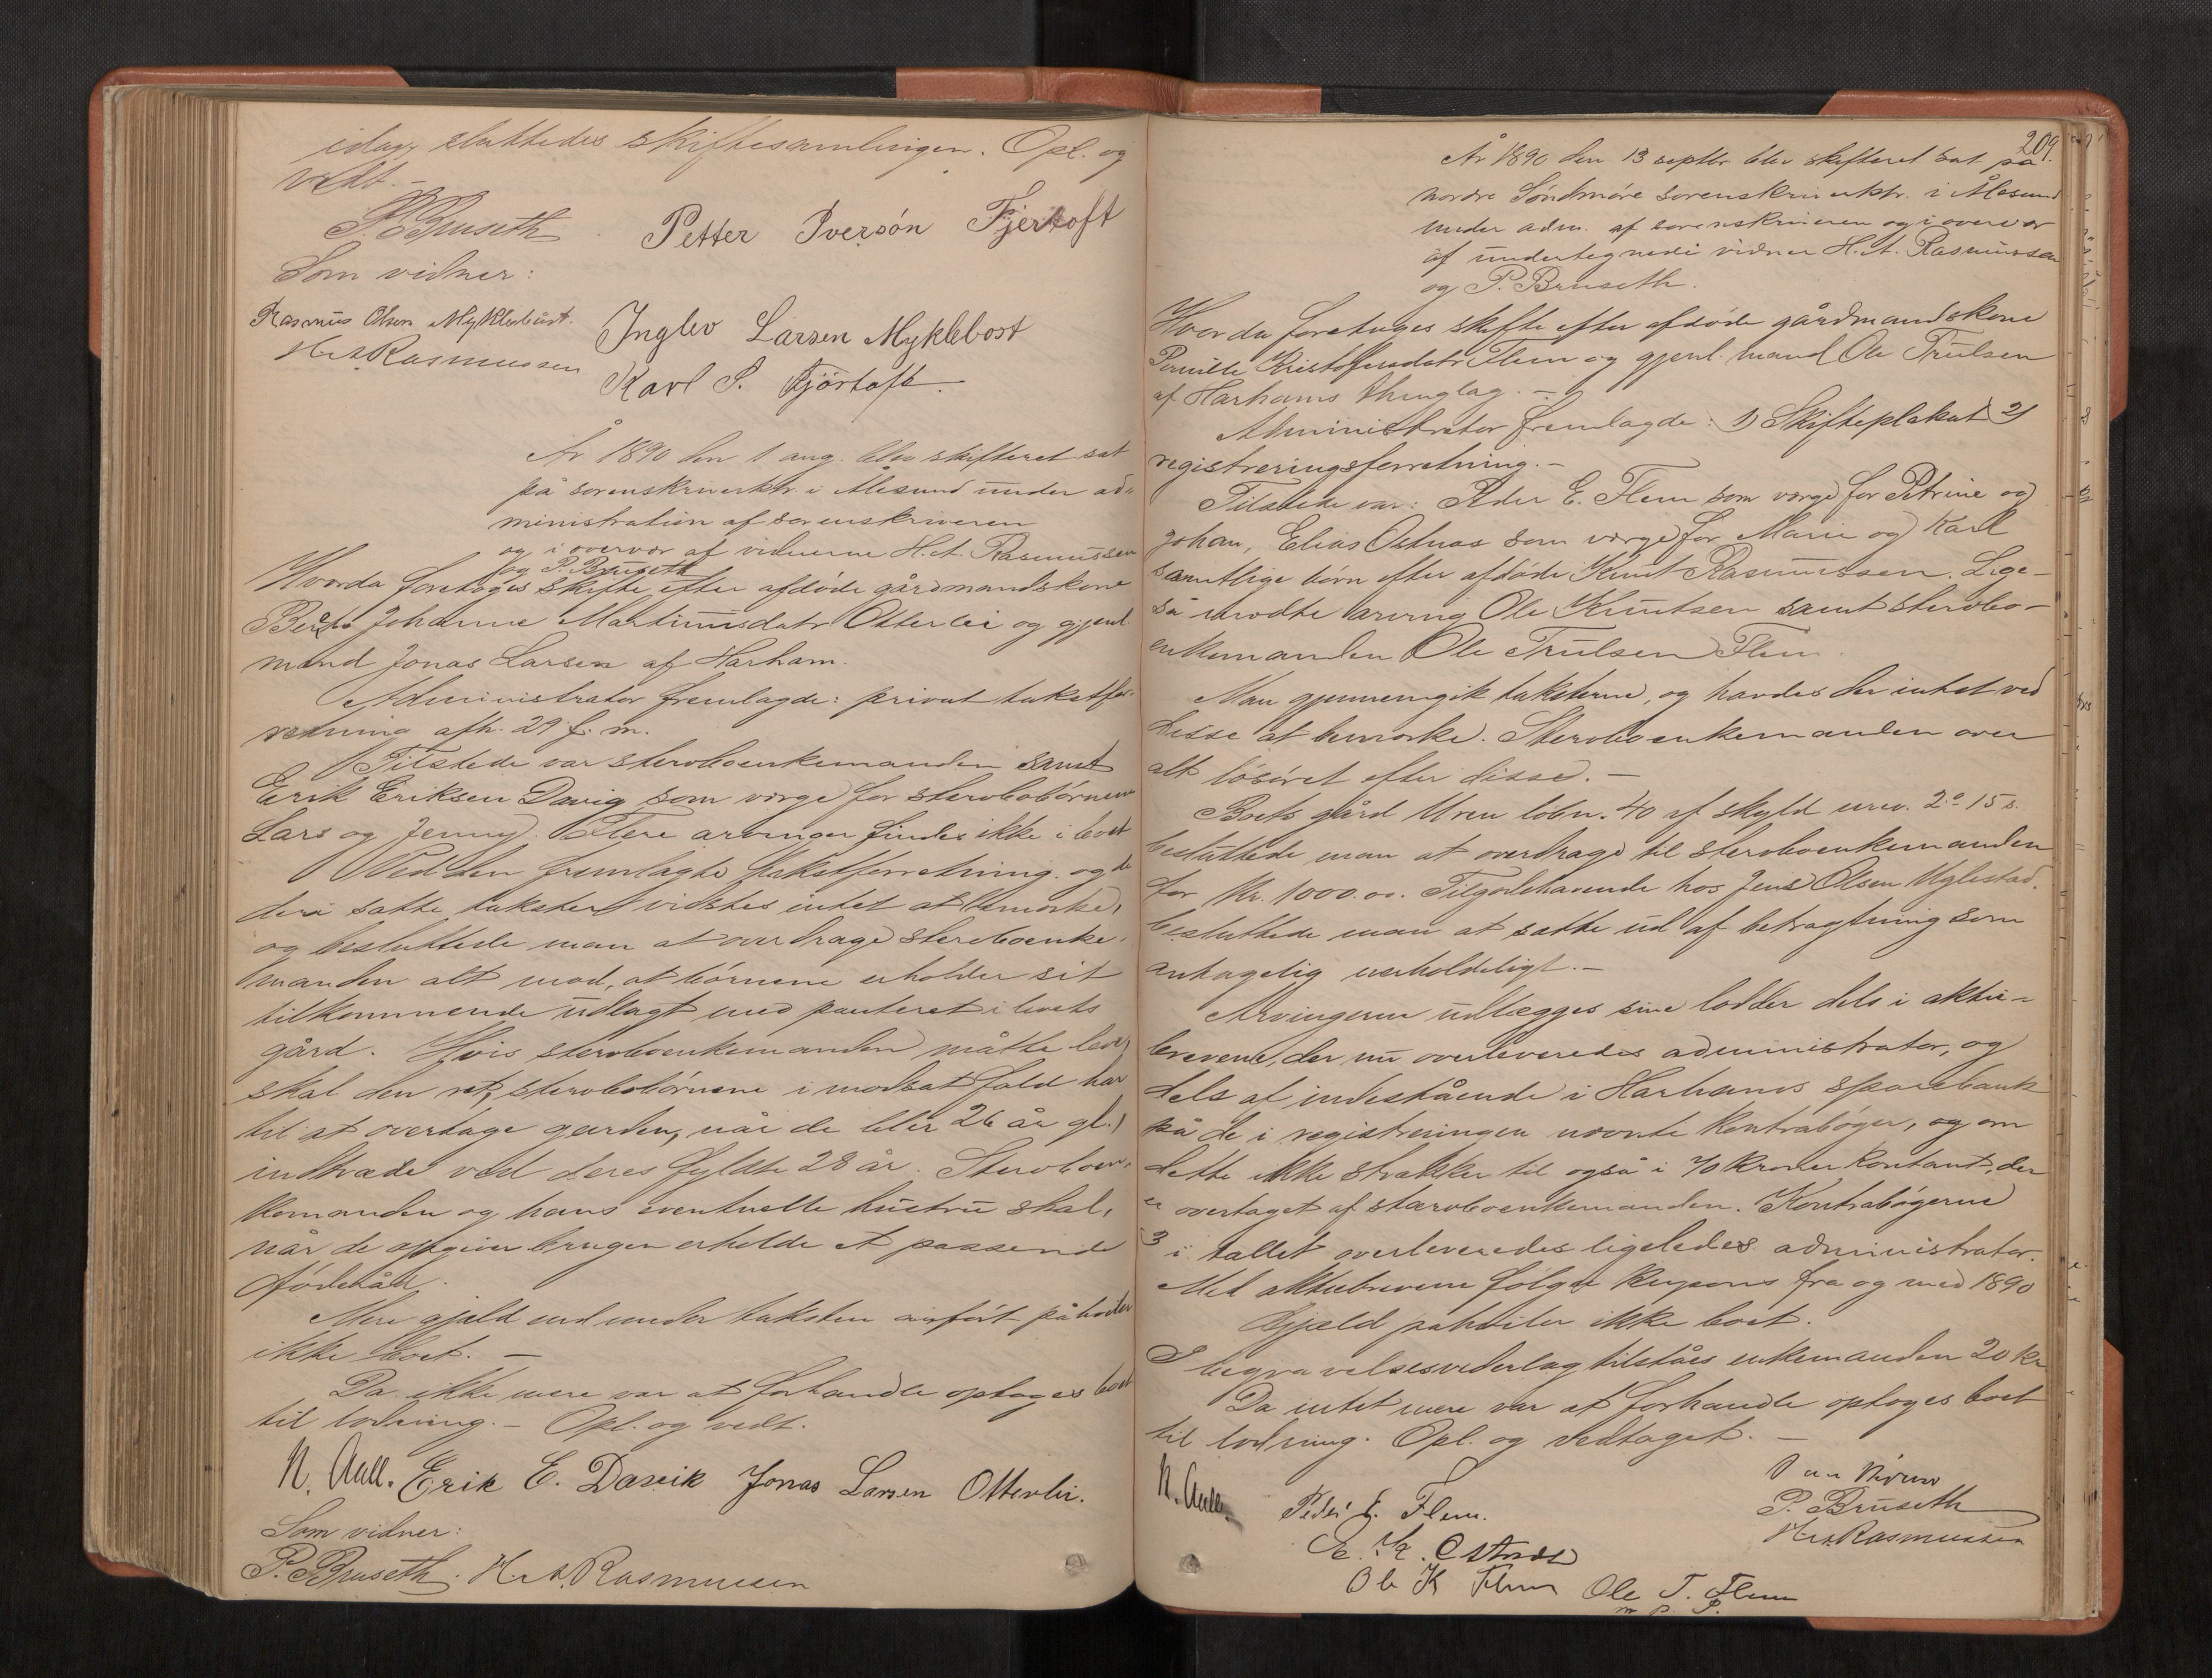 idag, sluttedes skiftesamlingen. Opl. og
vedt. –
P. Bruseth Petter Iversøn Fjertoft
Som vidner:
Rasmus Olsen Myklebust. Inglev Larsen Myklebost
H. A. Rasmussen Karl P. Fjørtoft.
År 1890 den 1 aug. blev skifteret sat
på sorenskriverktr. i Ålesund under ad-
ministration af sorenskriveren
og i overvær af vidnerne H. A. Rasmussen
og P. Bruseth
Hvorda foretoges skifte efter afdøde gårdmandskone
Johanne Martinusdatr Otterlei og gjenl.
mand Jonas Larsen af Harham.
Administrator fremlagde: privat takstfor-
retning afh. 29 f. m.
Tilstede var stervboenkemanden samt
Erik Eriksen Davig som værge for stervbobørnene
Lars og Jenny. Flere arvinger findes ikke i boet
Ved den fremlagte takstforretning og de
deri satte takster vidstes intet at bemærke,
og besluttede man at overdrage stervboenke-
manden alt mod, at børnene erholder sit
tilkommende udlagt med panteret i boets
gård. Hvis stervboenkemanden måtte leve,
skal den ret, stervbobørnene i modsat fald har
til at overtage gården, når de blir 26 år gl.,
indtræde ved deres fyldte 28 år. Stervboen-
kemanden og hans eventuelle hustru skal,
når de opgiver brugen erholde et passende
føderåd.
Mere gjæld end under taksten anført påhviler
ikke boet. –
Da ikke mere var at forhandle optoges boet
til lodning. – Opl. og vedt.
N. Aall. Erik E. Davik Jonas Larsen Otterlei.
Som vidner:
P. Bruseth. H. A. Rasmussen
209.
År 1890 den 13 septbr blev skifteret sat på
nordre Søndmøre sorenskriverktr. i Ålesund
under adm. af sorenskriveren og i overvær
af undertegnede vidner H. A. Rasmussen
og P. Bruseth.
Hvorda foretoges skifte efter afdøde gårdmandskone
Pernille Kristofersdatr Flem og gjenl. mand Ole Trulsen
af Harhams thinglag. –
Administrator fremlagde: 1) Skifteplakat 2)
registreringsforretning. –
Tilstede var: Peder E. Flem som værge for Petrine og
Johan, Elias Østnæs som værge for Marie og Karl
samtlige børn efter afdøde Knut Rasmussen. Lige-
så mødte arving Ole Knutsen samt stervbo-
enkemanden Ole Trulsen Flem.
Man gjennemgik taksterne, og havdes der intet ved
disse at bemærke. Stervboenkemanden over
alt løsøret efter disse. –
Boets gård Uren løbn. 40 af skyld urev. 2 o 15 s.
besluttede man at overdrage til stervboenkemanden
for Kr. 1000.00. Tilgodehavende hos Jens Olsen Uglestad.
besluttede man at sætte ud af betragtning som
antagelig uerholdeligt. –
Arvingerne udlægges sine lodder dels i aktie-
brevene, der nu overleveredes administrator, og
dels af indestående i Harhams sparebank
på de i registreringen nævnte kontrabøger, og om
dette ikke strækker til også i 70 kroner kontant, der
er overtaget af stervboenkemanden. Kontrabøgerne
3 i tallet overleveredes ligeledes administrator.
Med aktiebrevene følger kupons fra og med 1890
Gjæld påhviler ikke boet.
I begravelsesvederlag tilståes enkemanden 20 Kr.
Da intet mere var at forhandle optoges boet
til lodning. Opl. og vedtaget. –
N. Aall. Peder E. Flem. Som vidner
P. Bruseth
E. K. Østnæs H. A. Rasmussen
Ole K Flem Ole T. Flem
m. p. P.